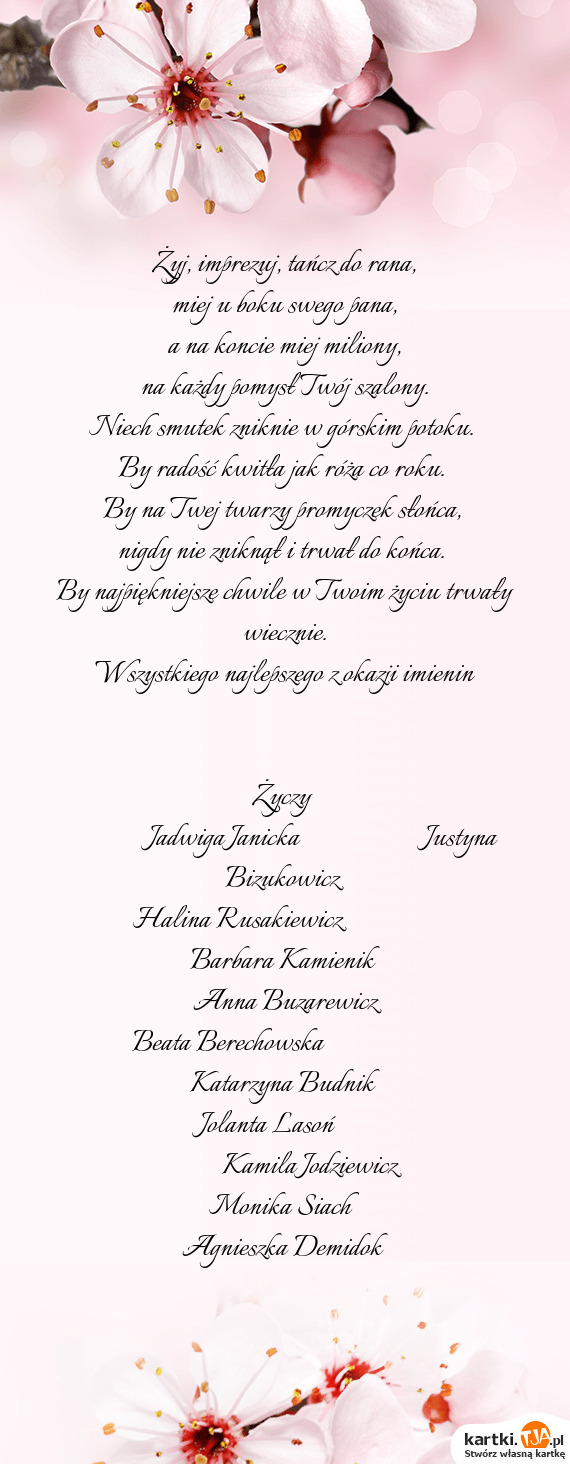 Żyj, imprezuj, tańcz do rana,
miej u boku swego pana,
a na koncie miej miliony,
na każdy pomysł Twój szalony.
Niech smutek zniknie w górskim potoku.
By radość kwitła jak róża co roku.
By na Twej twarzy promyczek słońca,
nigdy nie zniknął i trwał do końca.
By najpiękniejsze chwile w Twoim życiu trwały
wiecznie.
Wszystkiego najlepszego z okazji imienin
Życzy
Jadwiga Janicka Justyna
Bizukowicz
Halina Rusakiewicz
Barbara Kamienik
Anna Buzarewicz
Beata Berechowska
Katarzyna Budnik
Jolanta Lasoń
Kamila Jodziewicz
Monika Siach
Agnieszka Demidok
kartki.TJA.pl
Stwórz własną kartkę